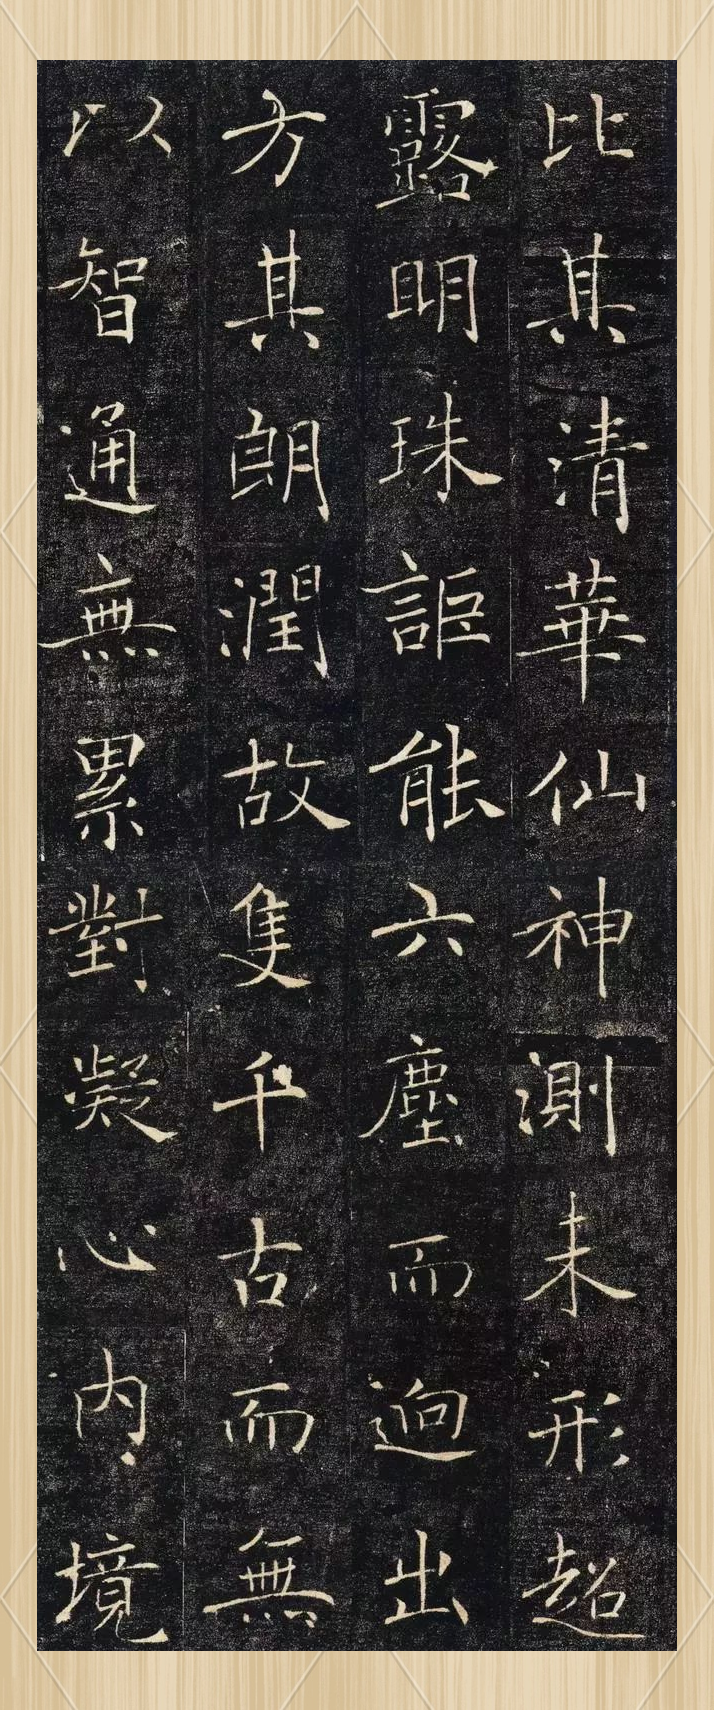 比其清華仙神測未形超
露明珠詎能六塵而迥出
方其朗潤故隻千古而無
以智通無累對凝心內境